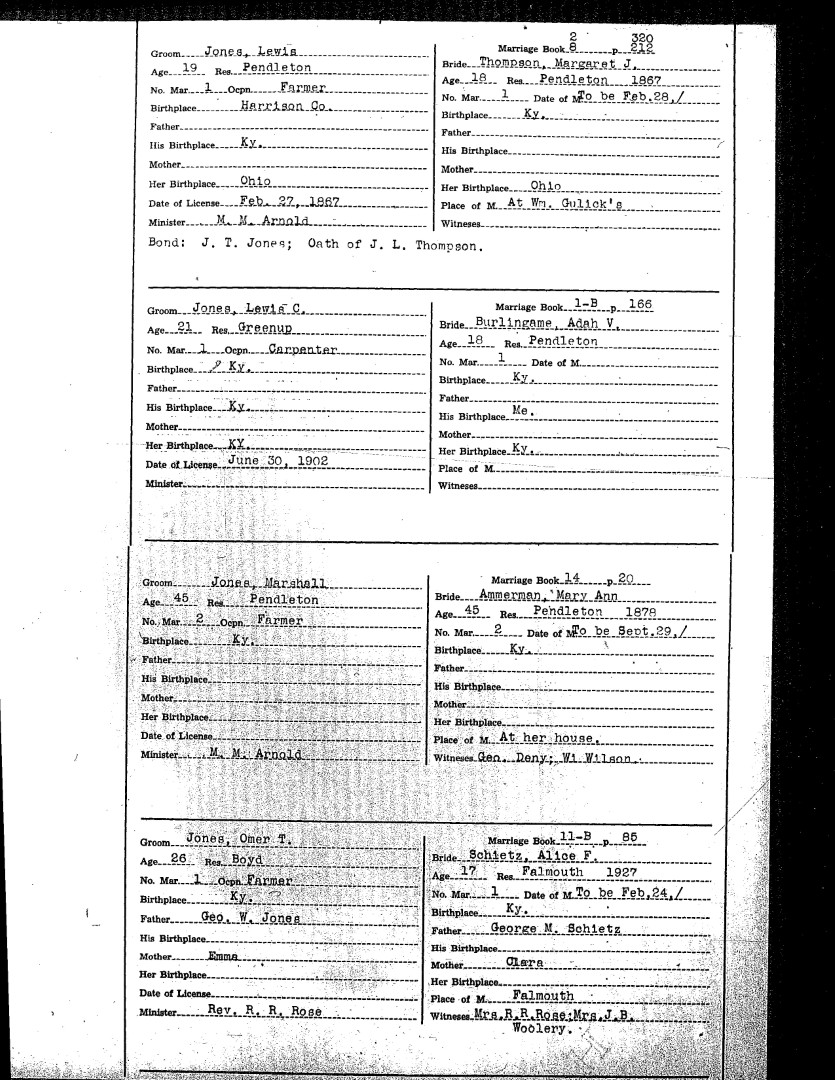 Groom Jones, Lewis
Age 19 Res. Pendleton
No. Mar. 1 Ocpn. Farmer
Birthplace Harrison Co.
Father
His Birthplace Ky.
Mother
Her Birthplace Ohio
Date of License Feb. 27, 1867
Minister M. M. Arnold
2 320
Marriage Book 8 p. 212
Bride Thompson, Margaret J.
Age 18 Res. Pendleton 1867
No. Mar. 1 Date of M. To be Feb.28,/
Birthplace Ky.
Father
His Birthplace
Mother
Her Birthplace Ohio
Place of M. At Wm. Gulick's
Witnesses
Bond: J. T. Jones; Oath of J. L. Thompson.
Groom Jones, Lewis C.
Age 21 Res. Greenup
No. Mar. 1 Ocpn. Carpenter
Birthplace Ky.
Father
His Birthplace Ky.
Mother
Her Birthplace KY.
Date of License June 30, 1902
Minister
Marriage Book 1-B p. 166
Bride Burlingame, Adah V.
Age 18 Res. Pendleton
No. Mar. 1 Date of M.
Birthplace Ky.
Father
His Birthplace Me.
Mother
Her Birthplace Ky.
Place of M.
Witnesses
Groom Jones, Marshall
Age 45 Res. Pendleton
No. Mar. 2 Ocpn. Farmer
Birthplace Ky.
Father
His Birthplace
Mother
Her Birthplace
Date of License
Minister M. M. Arnold
Marriage Book 14 p. 20
Bride Ammerman, Mary Ann
Age 45 Res. Pendleton 1878
No. Mar. 2 Date of M. To be Sept.29,/
Birthplace Ky.
Father
His Birthplace
Mother
Her Birthplace
Place of M. At her house.
Witnesses Geo. Deny; Wi Wilson.
Groom Jones, Omer T.
Age 26 Res. Boyd
No. Mar. 1 Ocpn. Farmer
Birthplace Ky.
Father Geo. W. Jones
His Birthplace
Mother Emma
Her Birthplace
Date of License
Minister Rev. R. R. Rose
Marriage Book 11-B p. 85
Bride Schietz, Alice F.
Age 17 Res. Falmouth 1927
No. Mar. 1 Date of M. To be Feb.24,/
Birthplace Ky.
Father George M. Schietz
His Birthplace
Mother Clara
Her Birthplace
Place of M. Falmouth
Witnesses Mrs.R.R.Rose;Mrs.J.B.
Woolery.